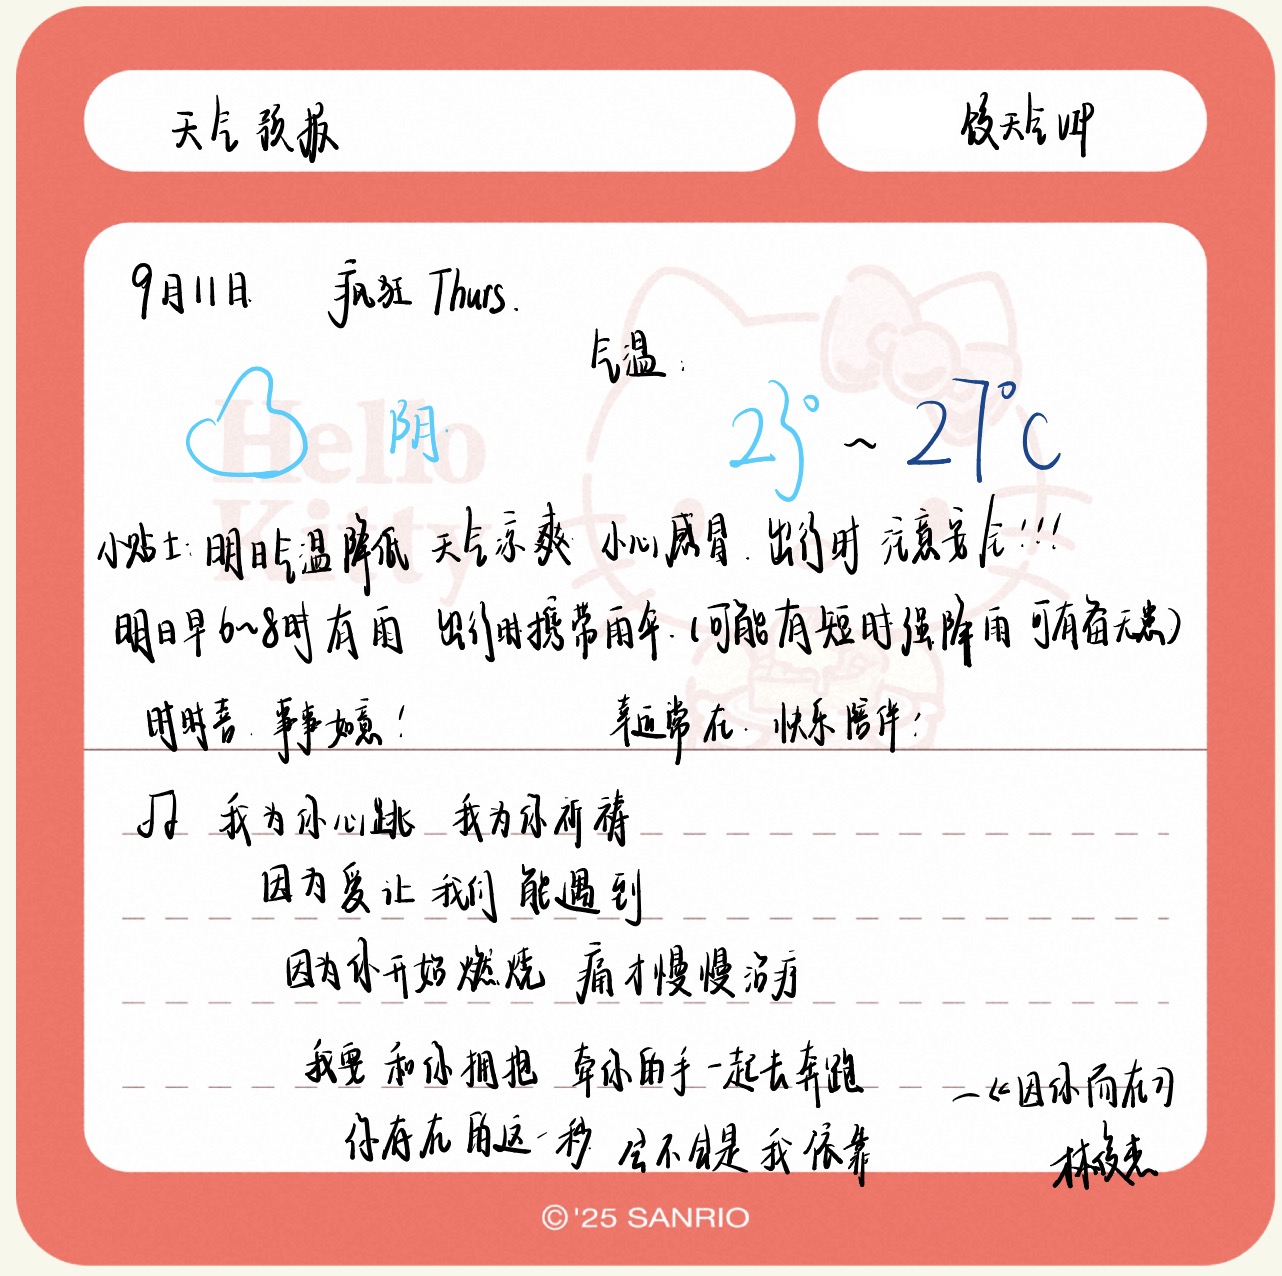 天气预报
天气
9月11日 疯狂 Thurs.
气温:
Hello
Kitty
阴
23° ~ 27°C
小贴士: 明日气温降低 天气凉爽 小心感冒. 出行时 注意安全!!!
明日早6~8时有雨 出行时携带雨伞.(可能有短时强降雨 可有备无患)
时时喜. 事事如意!
幸运常在. 快乐陪伴!
我为你心跳 我为你祈祷
因为爱让我们能遇到
因为你开始燃烧 痛才慢慢治疗
我要和你拥抱 牵你的手一起去奔跑
你存在的这一秒 会不会是我依靠
—《因你而在》
林俊杰
© '25 SANRIO